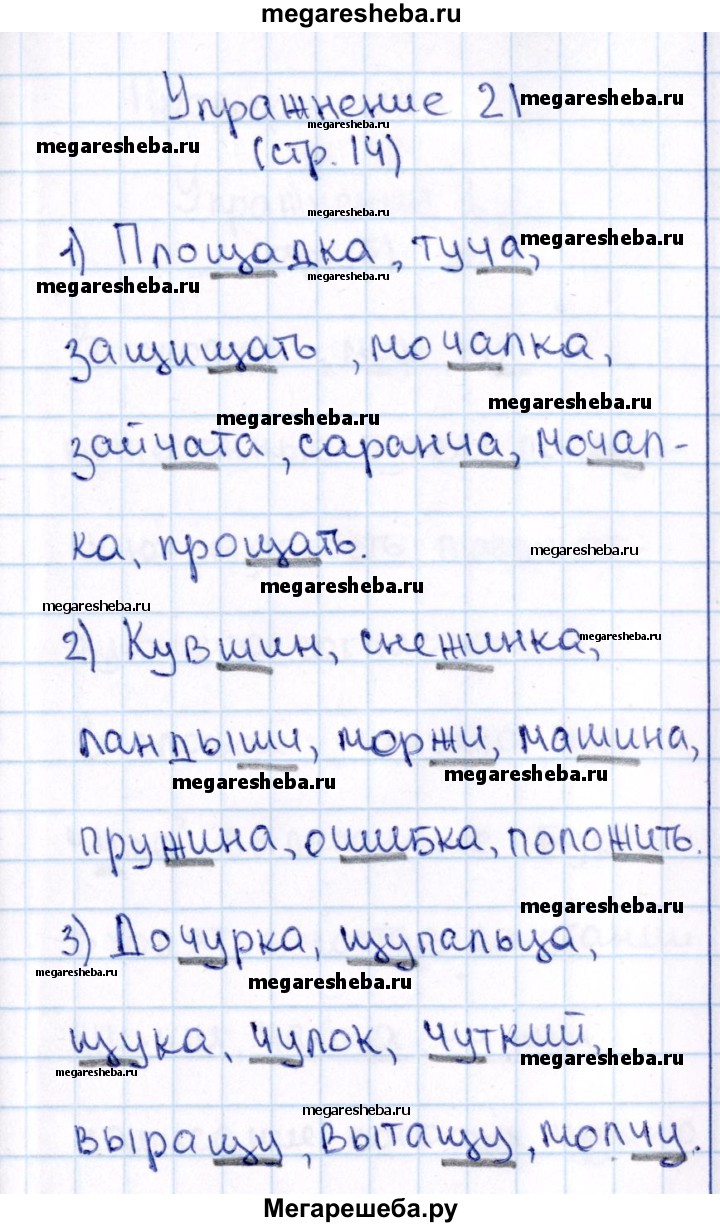 megaresheba.ru
Упражнение 21 megaresheba.ru
megaresheba.ru
megaresheba.ru
(стр. 14)
megaresheba.ru
1) Площадка, туча, megaresheba.ru
megaresheba.ru
megaresheba.ru
защищать, мочалка,
megaresheba.ru
megaresheba.ru
зайчата, саранча, мочал-
ка, прощать.
megaresheba.ru
megaresheba.ru
megaresheba.ru
2) Кувшин, снежинка,
megaresheba.ru
ландыши, моржи, машина,
megaresheba.ru
megaresheba.ru
пружина, ошибка, положить.
megaresheba.ru
3) Дочурка, щупальца,
megaresheba.ru
megaresheba.ru
щука, чулок, чуткий,
megaresheba.ru
megaresheba.ru
megaresheba.ru
выращу, вытащу, молчу.
Мегарешеба.ру